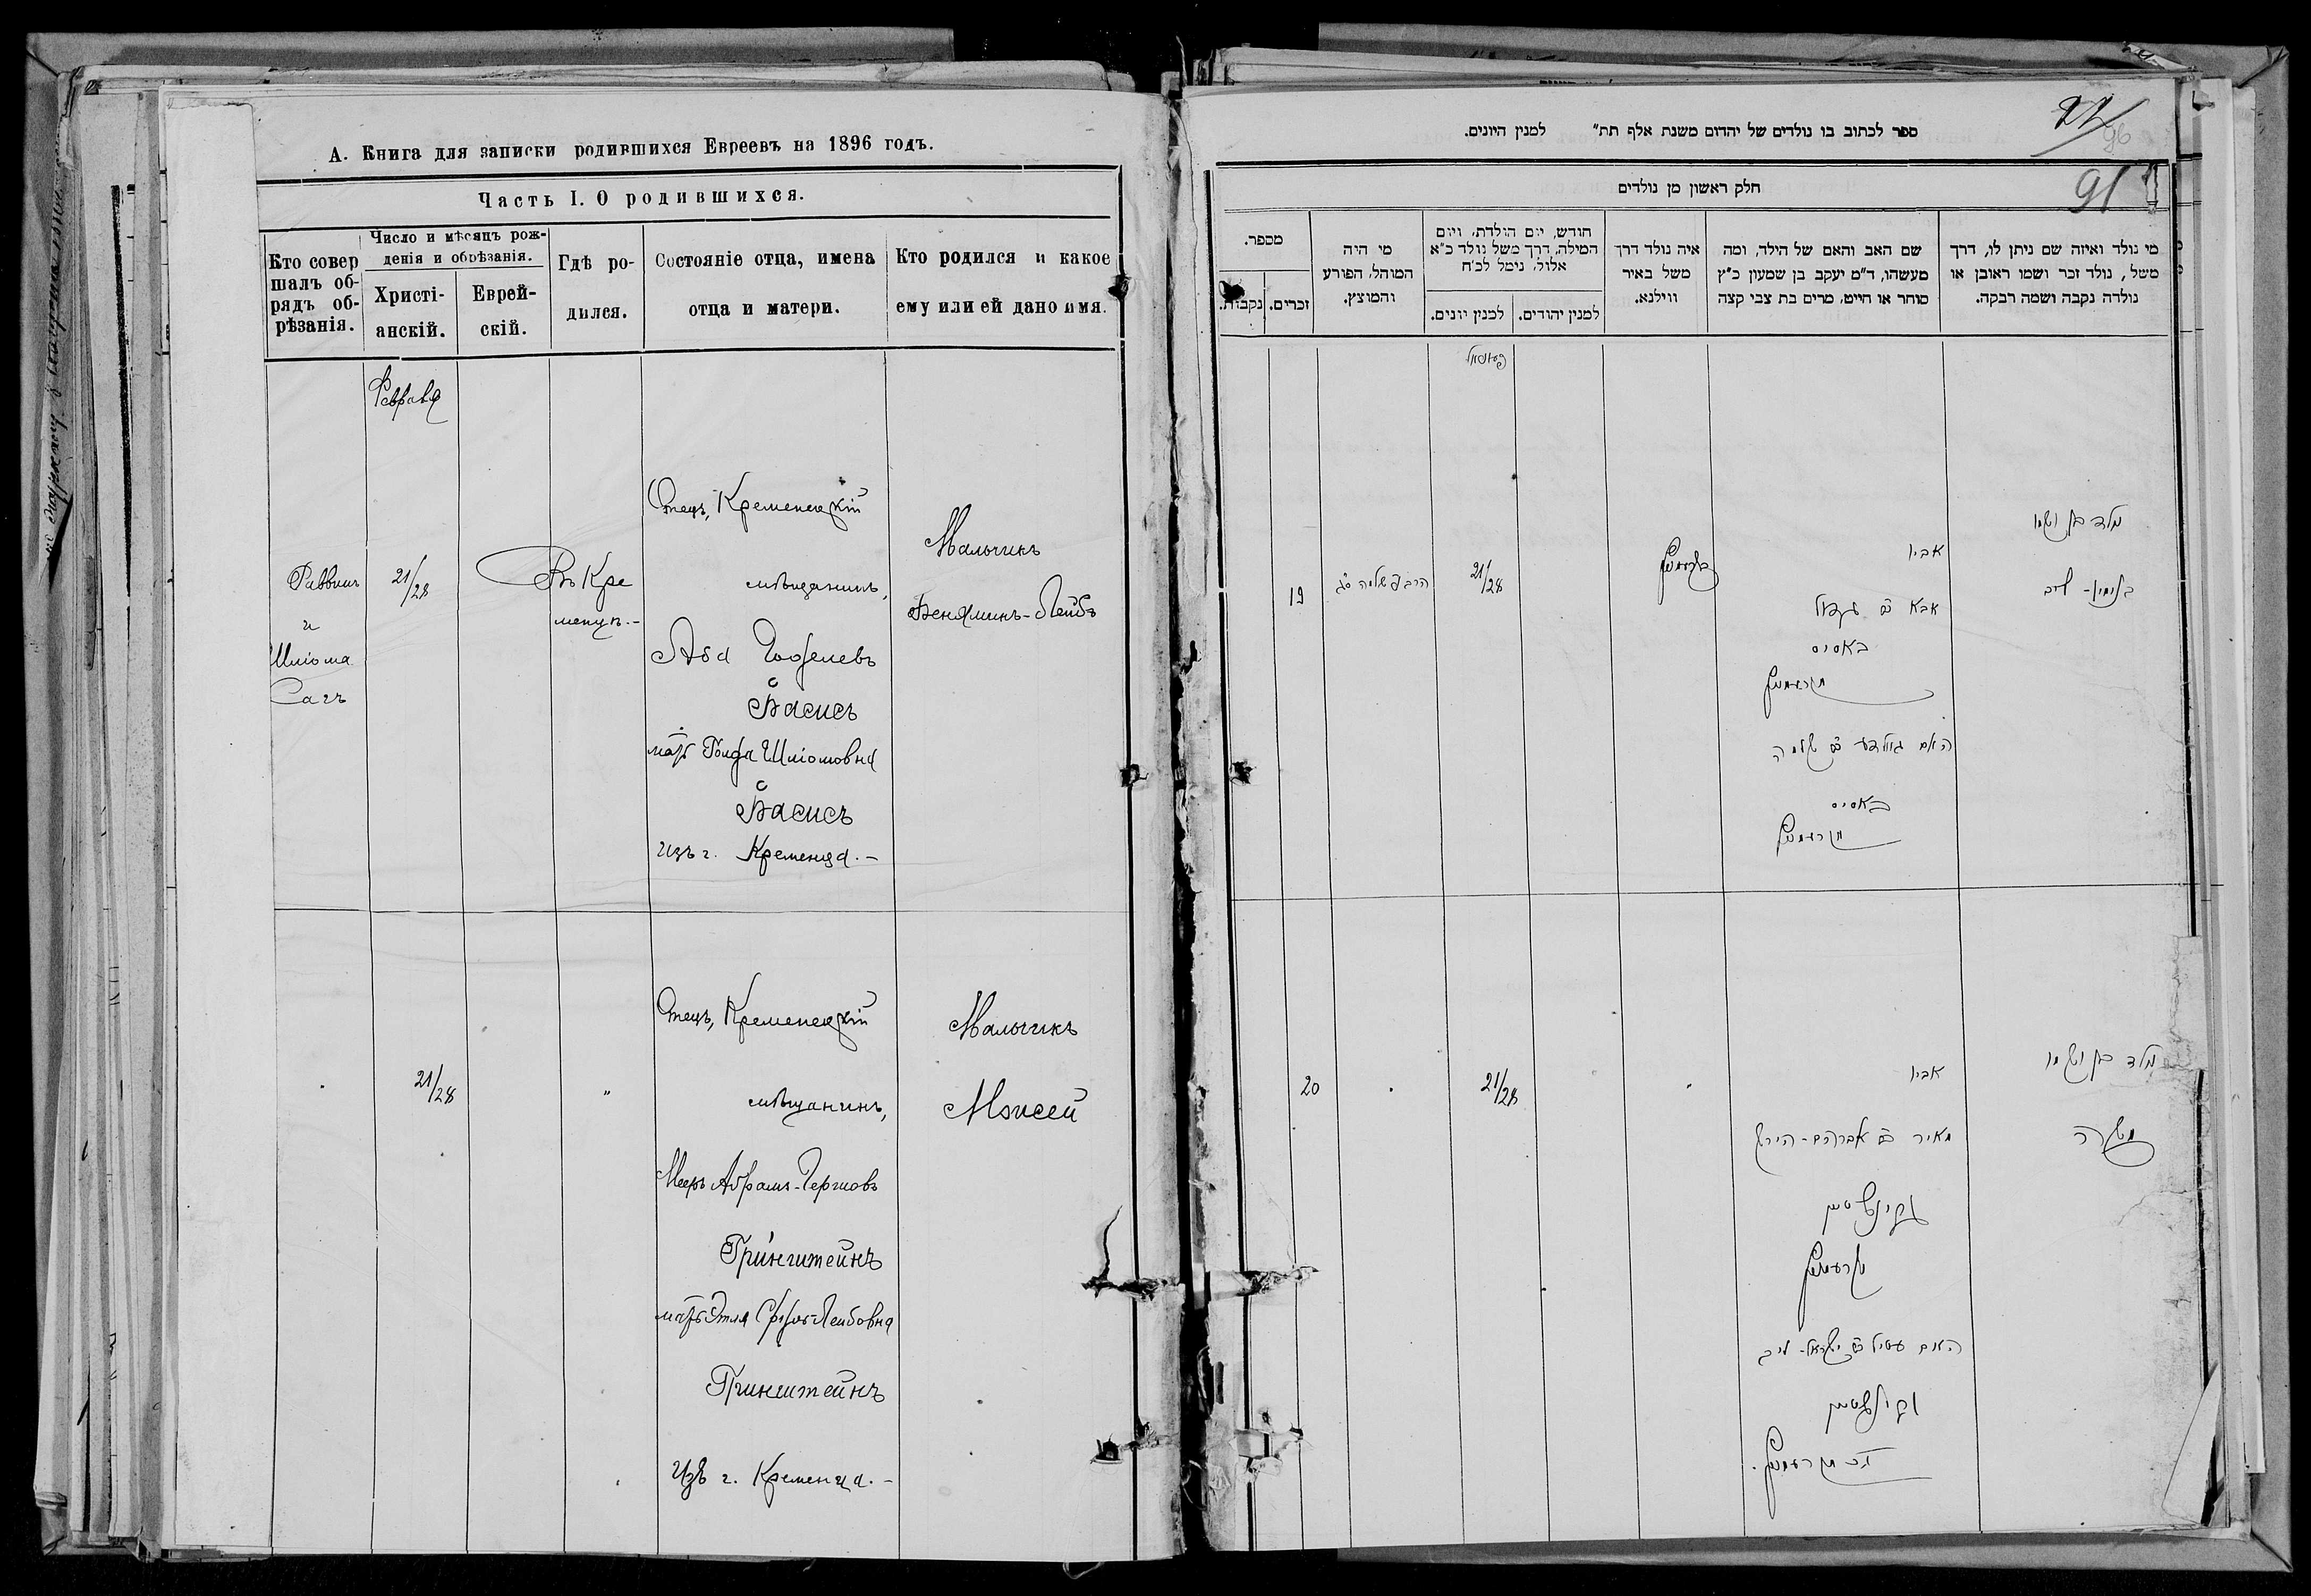 А. Книга для записки родившихся Евреевъ на 1896 годъ.
Часть I. О родившихся.
Кто совер
шалъ об-
рядъ об-
рѣзанія.
Число и мѣсяцъ рож-
денія и обрѣзанія.
Христі-
анскій.
Еврей-
скій.
Гдѣ ро-
дился.
Состояніе отца, имена
отца и матери.
Кто родился и какое
ему или ей дано имя.
Февраля
Раввинъ
и
Шліома
Сагъ
21/28
Въ Кре
менцѣ.-
Отецъ, Кременецкій
мѣщанинъ,
Аба
Басисъ
мать Голда Шліомовна
Басисъ
изъ г. Кременца.-
Мальчикъ
Бенямин-Лейбъ
21/28
"
Отецъ, Кременецкій
мѣщанинъ,
Мееръ Абрамъ-Гершовъ
Гринштейнъ
мать Этля Лейбовна
Гринштейнъ
Изъ г. Кременца.-
Мальчикъ
Моисей
22/
96
91
ספר לכתוב בו נולדים של יהדום משנת אלף תת" למנין היונים.
חלק ראשון מן נולדים
מי נולד ואיזה שם ניתן לו, דרך
משל, נולד זכר ושמו ראובן או
נולדה נקבה ושמה רבקה.
שם האב והאם של הילד, ומה
מעשהו, ד"מ יעקב בן שמעון כ"ץ
סוחר או חייט, מרים בת צבי קצה
איה נולד דרך
משל באיר
ווילנא.
חודש, יום הולדת, ויום
המילה, דרך משל נולד כ"א
אלול, נימל לכ"ח
למנין יהודים.
למנין יונים.
מי היה
המוהל, הפורע
והמוצץ.
מספר.
זכרים.
נקבות.
נולד בן ושמו
בנימין-לייב
אביו
אבא
באסיס
האם גולדע שלמה
באסיס
21/28
19
נולד בן ושמו
משה
אביו
מאיר אברהם-הירש
גרינשטיין
האם עטיל ישראל-לייב
גרינשטיין
21/28
20